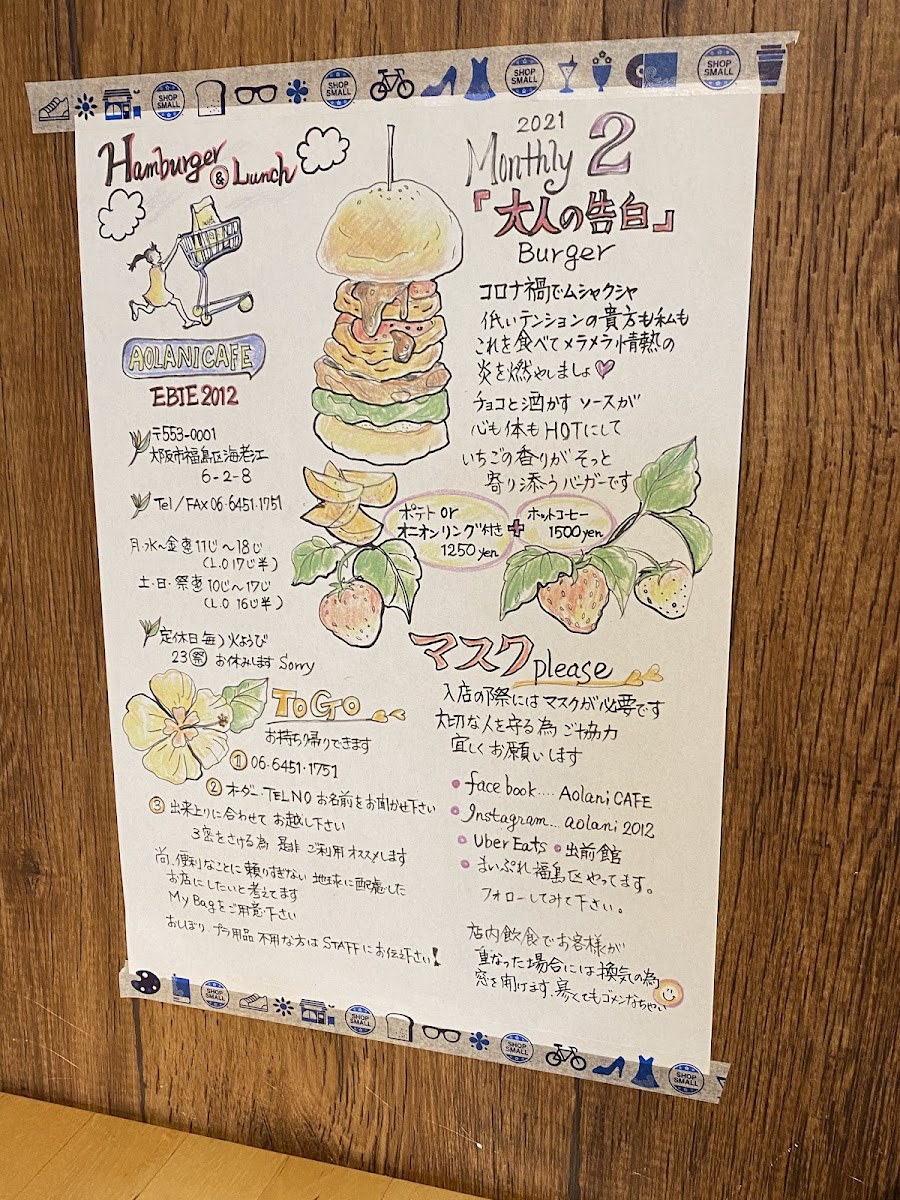 SHOP SMALL
SHOP SMALL
SHOP SMALL
SHOP SMALL
Hamburger & Lunch
AOLANICAFE
EBIE 2012
〒553-0001
大阪市福島区海老江
6-2-8
Tel/FAX 06・6451・1751
月・水~金 11じ~18じ
(L.O 17じ半)
土・日・祭 10じ~17じ
(L.O 16じ半)
定休日 毎 火ようび
23祭 お休みします Sorry
2021
Monthly 2
「大人の告白」
Burger
コロナ禍でムシャクシャ
低いテンションの貴方も私も
これを食べてメラメラ情熱の
炎を燃やしましょ♡
チョコと酒かす ソースが
心も体もHOTにして
いちごの香りがそっと
寄り添うバーガーです
ポテトor
オニオンリング付き
1250yen
+
ホットコーヒー
1500yen
TO GO
お持ち帰りできます
① 06・6451・1751
② オーダー、TEL NO お名前をお聞かせ下さい
③ 出来上りに合わせて お越し下さい
3密をさける為 是非 ご利用 オススメします
尚、便利なことに頼りすぎない 地球に配慮した
お店にしたいと考えてます
My Bagをご用意下さい
おしぼり プラ用品 不用な方は STAFFにお伝え下さい!
マスク please
入店の際にはマスクが必要です
大切な人を守る為 ご協力
宜しくお願いします
facebook.... Aolani CAFE
Instagram... aolani 2012
Uber Eats 出前館
まいぷれ福島区やってます。
フォローしてみて下さい。
店内飲食でお客様が
重なった場合には換気の為
窓を開けます、寒くてもゴメンなちゃい
SHOP SMALL
SHOP SMALL
SHOP SMALL
SHOP SMALL